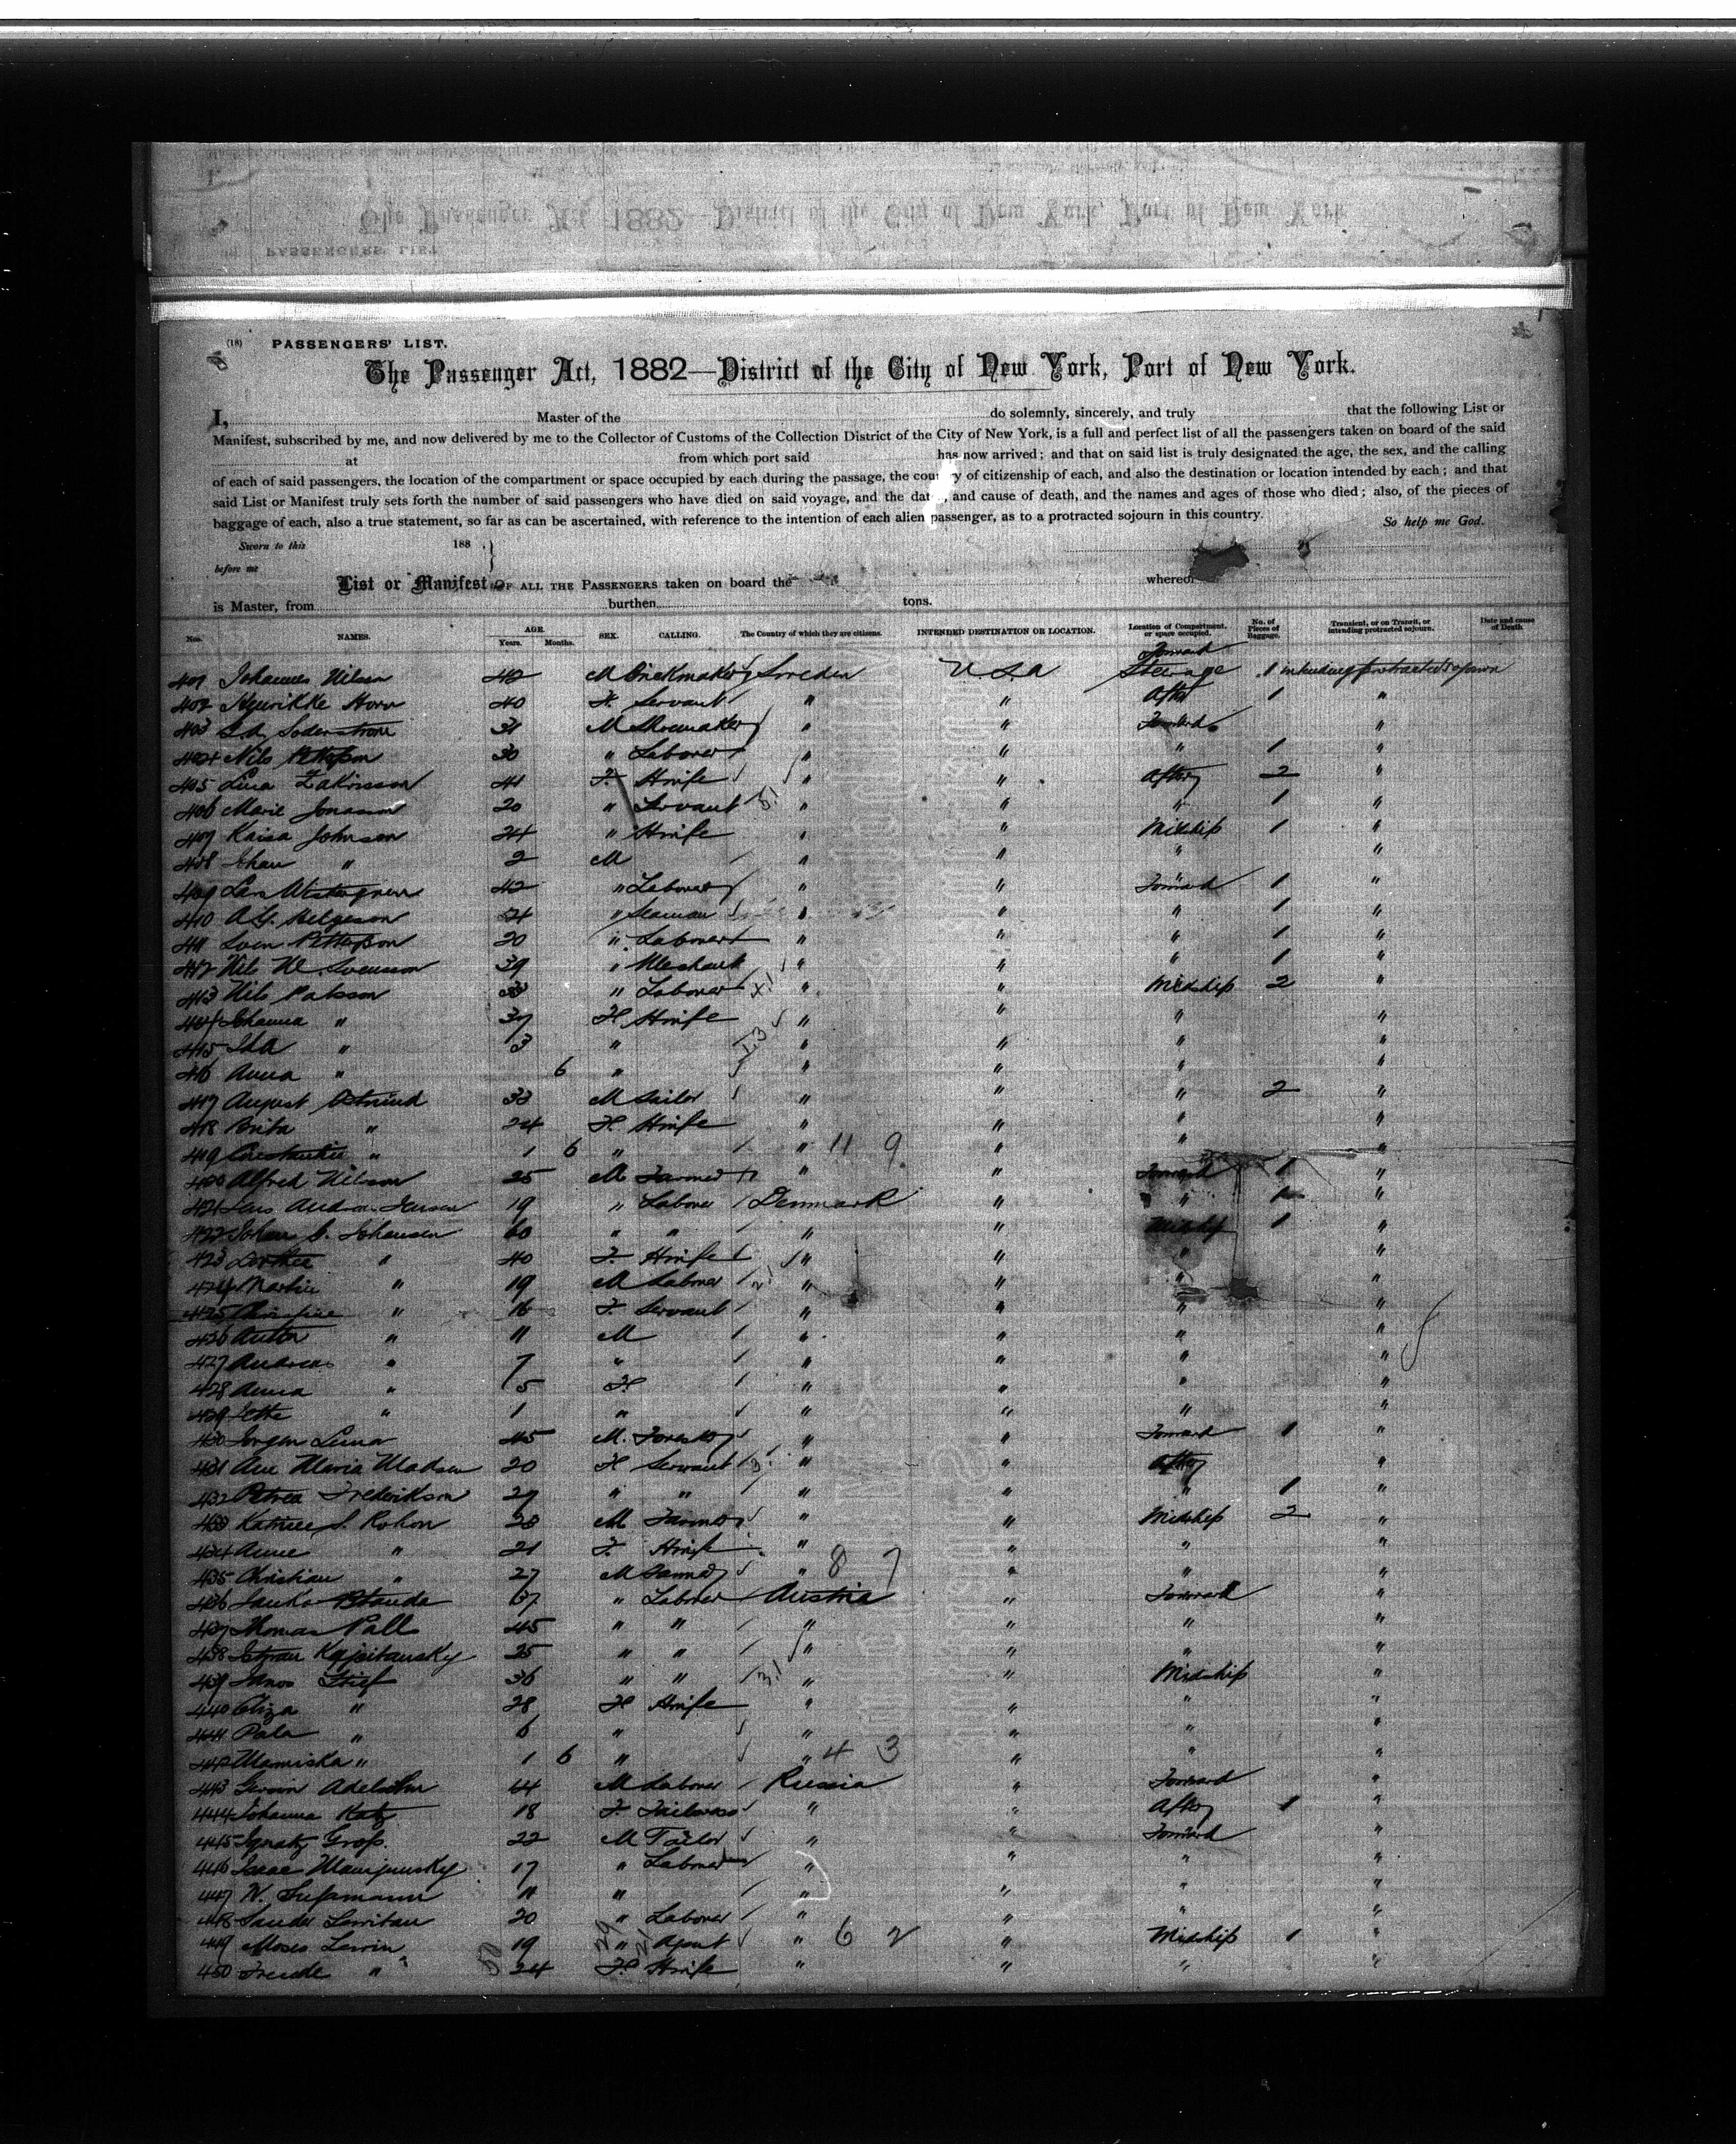 (18) PASSENGERS' LIST.
The Passenger Act, 1882—District of the City of New York, Port of New York.
I, Master of the do solemnly, sincerely, and truly that the following List or
Manifest, subscribed by me, and now delivered by me to the Collector of Customs of the Collection District of the City of New York, is a full and perfect list of all the passengers taken on board of the said
at from which port said has now arrived; and that on said list is truly designated the age, the sex, and the calling
of each of said passengers, the location of the compartment or space occupied by each during the passage, the country of citizenship of each, and also the destination or location intended by each; and that
said List or Manifest truly sets forth the number of said passengers who have died on said voyage, and the date, and cause of death, and the names and ages of those who died; also, of the pieces of
baggage of each, also a true statement, so far as can be ascertained, with reference to the intention of each alien passenger, as to a protracted sojourn in this country. So help me God.
Sworn to this 188
before me
List or Manifest OF ALL THE PASSENGERS taken on board the whereof
is Master, from burthen tons.
Nos. NAMES. AGE. Years. Months. SEX. CALLING. The Country of which they are citizens. INTENDED DESTINATION OR LOCATION. Location of Compartment, or space occupied. No. of Pieces of Baggage. Transient, or on Transit, or intending protracted sojourn. Date and cause of Death
401 Johannes Nilson 42 M Brickmaker Sweden U.S.A Forward Steerage 1 intending protracted sojourn
402 Henrikke Horn 40 F. Servant " " After 1 "
403 Soderstrom 31 M Shoemaker " " Forward "
404 Nils Pettersson 30 " Laborer " " " 1 "
405 Lina Zakrisson 41 F. Hwife " " After 2 "
406 Marie Jonasson 20 " Servant " " " 1 "
407 Kaisa Johnson 24 " Hwife " " Midship 1 "
408 Johan " 2 M " " " "
409 Lars Westergreen 42 " Laborer " " Forward 1 "
410 Helgeson 24 " Seaman " " " 1 "
411 Sven Pettersson 20 " Laborer " " " 1 "
412 Nils Svensson 39 " " " " 1 "
413 Nils Palsson 33 " Laborer " " Midship 2 "
414 Johanna " 37 F Hwife " " " "
415 Ida " 3 " " " " "
416 Anna " 6 " " " " "
417 August 33 M Sailor " " " 2 "
418 Brita " 24 F. Hwife " " " "
419 " 1 6 " " 11 9 " " "
420 Alfred Nilsson 25 M Farmer " " Forward 1 "
421 Jensen 19 " Laborer Denmark " " 1 "
422 Johan Johansen 60 " " " " Midship 1 "
423 Dorthea " 40 F. Hwife " " " "
424 Martin " 19 M Laborer " " " "
425 Christine " 16 F. Servant " " " "
426 Anton " 11 M " " " "
427 Andreas " 7 " " " " "
428 Anna " 5 F " " " "
429 Jette " 1 " " " " "
430 Jorgen 45 M. " " Forward 1 "
431 Ane Maria Madsen 20 F Servant " " After "
432 Petrea Frederikson 27 " " " " " 1 "
433 28 M Farmer " " Midship 2 "
434 Anne " 21 F. Hwife " " " "
435 Christian " 27 M Farmer " 8 7 " " "
436 Janko 37 " Laborer Austria " Forward "
437 Thomas Pall 45 " " " " " "
438 Istvan Kapitansky 25 " " " " " "
439 Janos 36 " " " " Midship "
440 Eliza " 28 F Hwife " " " "
441 Pala " 6 " " " " "
442 Mamiska " 1 6 " " 4 3 " " "
443 44 M Laborer Russia " Forward "
444 Johanna Katz 18 F. Tailoress " " After 1 "
445 Ignatz Gross 22 M Tailor " " Forward "
446 Isaac 17 " Laborer " " " "
447 W. Sussmann 11 " " " " "
448 Sander 20 " Laborer " " " "
449 Moses Lewin 19 " Agent " 6 2 " Midship 1 "
450 Freude " 24 F. Hwife " " " "